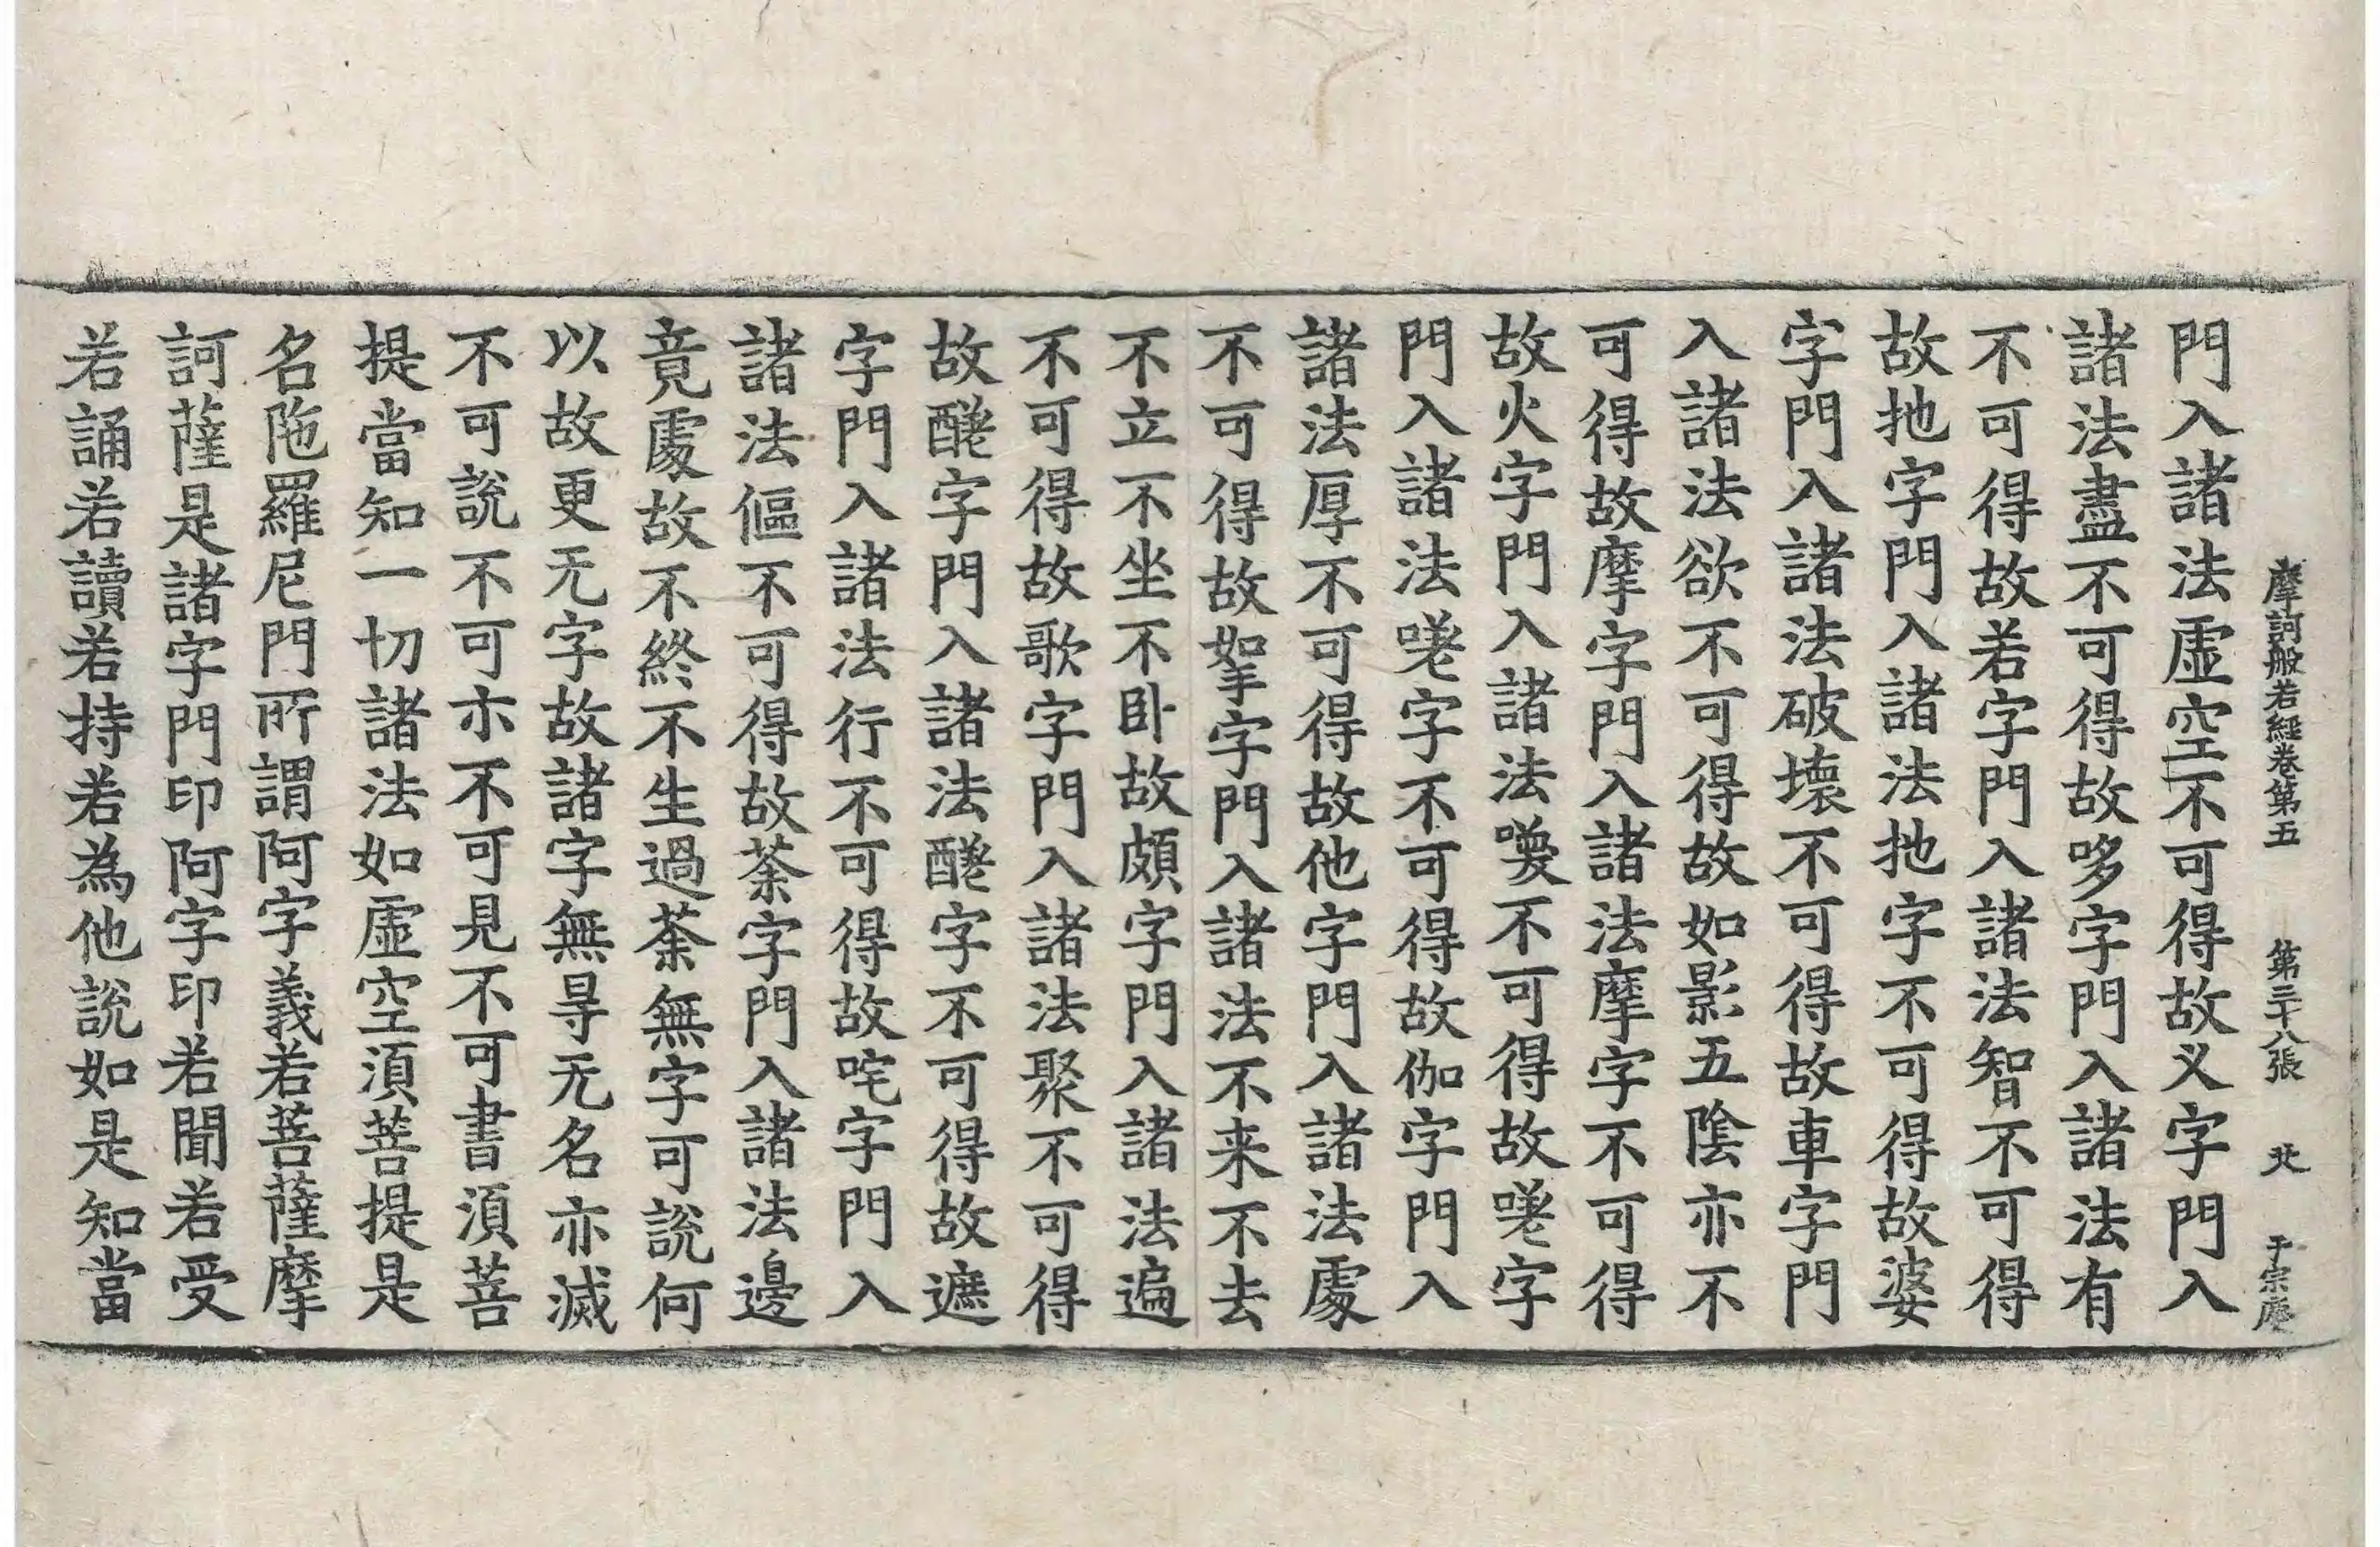 摩訶般若經卷第五　第二十八張　北　于宗庵
門入諸法虛空不可得故义字門入
諸法盡不可得故哆字門入諸法有
不可得故若字門入諸法智不可得
故扡字門入諸法扡字不可得故婆
字門入諸法破壞不可得故車字門
入諸法欲不可得故如影五陰亦不
可得故摩字門入諸法摩字不可得
故火字門入諸法喚不可得故嗟字
門入諸法嗟字不可得故伽字門入
諸法厚不可得故他字門入諸法處
不可得故拏字門入諸法不来不去
不立不坐不卧故頗字門入諸法遍
不可得故歌字門入諸法聚不可得
故醝字門入諸法醝字不可得故遮
字門入諸法行不可得故咤字門入
諸法傴不可得故荼字門入諸法邊
竟處故不終不生過荼無字可說何
以故更无字故諸字無㝵无名亦滅
不可說不可亦不可見不可書湏菩
提當知一切諸法如虛空湏菩提是
名陁羅尼門所謂阿字義若菩薩摩
訶薩是諸字門印阿字印若聞若受
若誦若讀若持若為他說如是知當